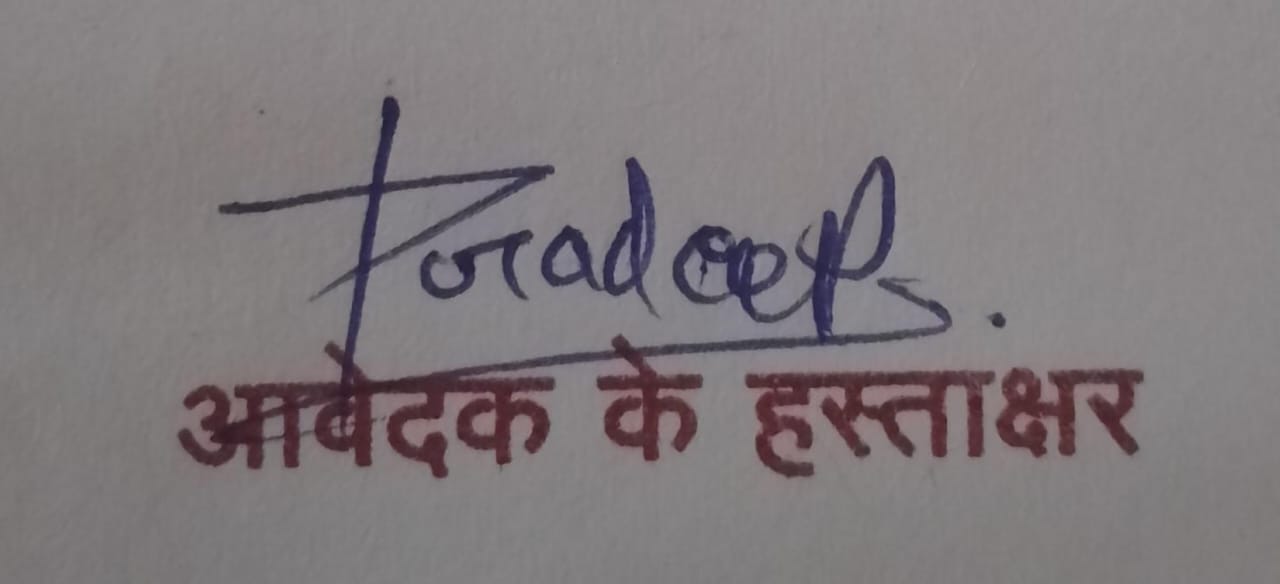 Pradeep.
आवेदक के हस्ताक्षर